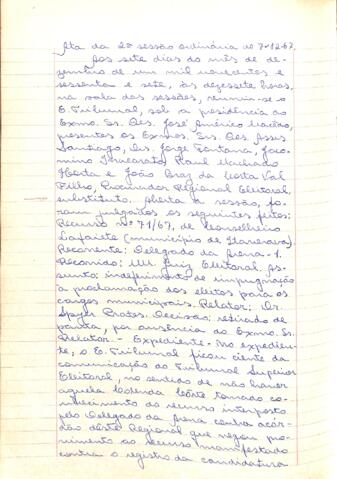 Ata da 2ª sessão ordinária de 7-12-67.
Aos sete dias do mês de de-
zembro de um mil novecentos e
sessenta e sete, às dezessete horas,
na sala das sessões, reuniu-se o
E. Tribunal, sob a presidência do
Exmo. Sr. Des. José Américo Macêdo,
presentes os Exmos. Srs. Des. Assis
Santiago, Drs. Jorge Fontana, Jaco-
mino Inacarato, Raul Machado
Horta e João Braz da Costa Val
Filho, Procurador Regional Eleitoral,
substituto. Aberta a sessão, fo-
ram julgados os seguintes feitos:
Recurso nº 71/67, de Conselheiro
Lafaiete (município de Itaverava).
Recorrente: Delegado da Arena-1.
Recorrido: MM. Juiz Eleitoral. As-
sunto: indeferimento de impugnação
à proclamação dos eleitos para os
cargos municipais. Relator: Dr.
Spyer Prates. Decisão: retirado de
pauta, por ausência do Exmo. Sr.
Relator. - Expediente - No expedien-
te, o E. Tribunal ficou ciente da
comunicação do Tribunal Superior
Eleitoral, no sentido de não haver
aquela Colenda Côrte tomado co-
nhecimento do recurso interposto
pelo Delegado da Arena contra acór-
dão dêste Regional que negou pro-
vimento ao recurso manifestado
contra o registro da candidatura